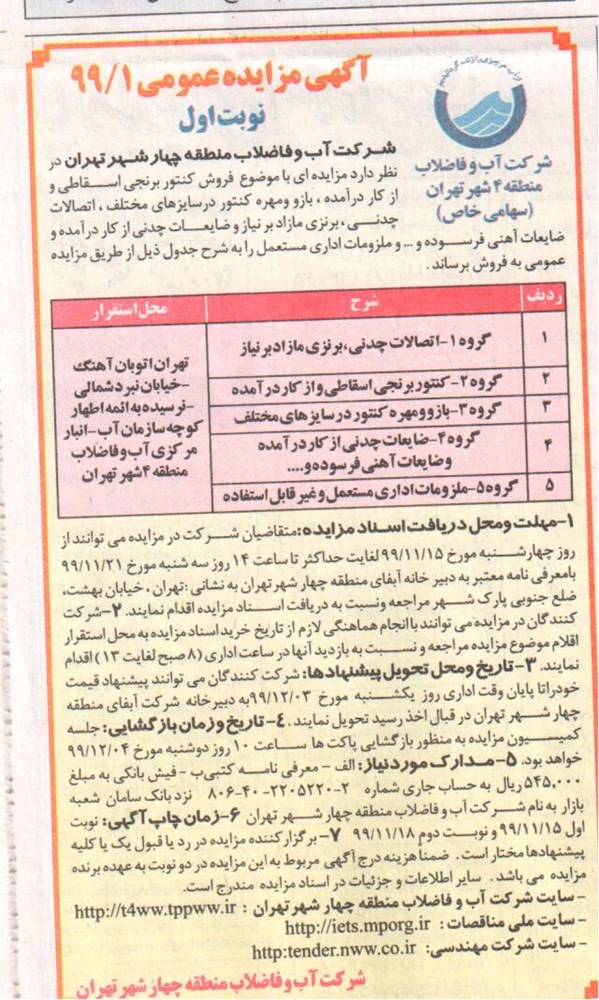 آگهی مزایده عمومی ۹۹/۱
نوبت اول
شرکت آب و فاضلاب
منطقه ۴ شهر تهران
(سهامی خاص)
شرکت آب و فاضلاب منطقه چهار شهر تهران در
نظر دارد مزایده ای با موضوع فروش کنتور برنجی اسقاطی و
از کار درآمده ، بازو ومهره کنتور درسایزهای مختلف ، اتصالات
چدنی ، برنزی مازاد بر نیاز و ضایعات چدنی از کار درآمده و
ضایعات آهنی فرسوده و ... و ملزومات اداری مستعمل را به شرح جدول ذیل از طریق مزایده
عمومی به فروش برساند .
ردیف شرح محل استقرار
۱ گروه ۱-اتصالات چدنی، برنزی مازاد بر نیاز
۲ گروه ۲-کنتور برنجی اسقاطی و از کار درآمده
۳ گروه ۳-بازو ومهره کنتور در سایز های مختلف
۴ گروه ۴-ضایعات چدنی از کار درآمده
وضایعات آهنی فرسوده و....
۵ گروه ۵-ملزومات اداری مستعمل وغیر قابل استفاده
تهران اتوبان آهنگ
-خیابان نبرد شمالی
-نرسیده به ائمه اطهار
کوچه سازمان آب-انبار
مرکزی آب و فاضلاب
منطقه ۴ شهر تهران
۱-مهلت ومحل دریافت اسناد مزایده: متقاضیان شرکت در مزایده می توانند از
روز چهارشنبه مورخ ۹۹/۱۱/۱۵ لغایت حداکثر تا ساعت ۱۴ روز سه شنبه مورخ ۹۹/۱۱/۲۱
بامعرفی نامه معتبر به دبیر خانه آبفای منطقه چهار شهر تهران به نشانی :تهران ، خیابان بهشت،
ضلع جنوبی پارک شهر مراجعه ونسبت به دریافت اسناد مزایده اقدام نمایند. ۲-شرکت
کنندگان در مزایده می توانند با انجام هماهنگی لازم از تاریخ خرید اسناد مزایده به محل استقرار
اقلام موضوع مزایده مراجعه و نسبت به بازدید آنها در ساعت اداری (۸ صبح لغایت ۱۳ ) اقدام
نمایند. ۳-تاریخ ومحل تحویل پیشنهادها: شرکت کنندگان می توانند پیشنهاد قیمت
خودرا تا پایان وقت اداری روز یکشنبه مورخ ۹۹/۱۲/۰۳ به دبیرخانه شرکت آبفای منطقه
چهار شهر تهران در قبال اخذ رسید تحویل نمایند. ۴-تاریخ وزمان بازگشایی: جلسه
کمیسیون مزایده به منظور بازگشایی پاکت ها ساعت ۱۰ روز دوشنبه مورخ ۹۹/۱۲/۰۴
خواهد بود. ۵-مدارک مورد نیاز: الف - معرفی نامه کتبی ب - فیش بانکی به مبلغ
۵۴۵,۰۰۰ ریال به حساب جاری شماره ۲-۲۲۰۵۲۲۰-۴۰-۸۰۶ نزد بانک سامان شعبه
بازار به نام شرکت آب و فاضلاب منطقه چهار شهر تهران ۶-زمان چاپ آگهی: نوبت
اول ۹۹/۱۱/۱۵ و نوبت دوم ۹۹/۱۱/۱۸ ۷- برگزار کننده مزایده در رد یا قبول یک یا کلیه
پیشنهادها مختار است . ضمناً هزینه درج آگهی مربوط به این مزایده در دو نوبت به عهده برنده
مزایده می باشد . سایر اطلاعات و جزئیات در اسناد مزایده مندرج است.
- سایت شرکت آب و فاضلاب منطقه چهار شهر تهران : http://t4ww.tppww.ir
- سایت ملی مناقصات: http://iets.mporg.ir
- سایت شرکت مهندسی: http:tender.nww.co.ir
شرکت آب و فاضلاب منطقه چهار شهر تهران